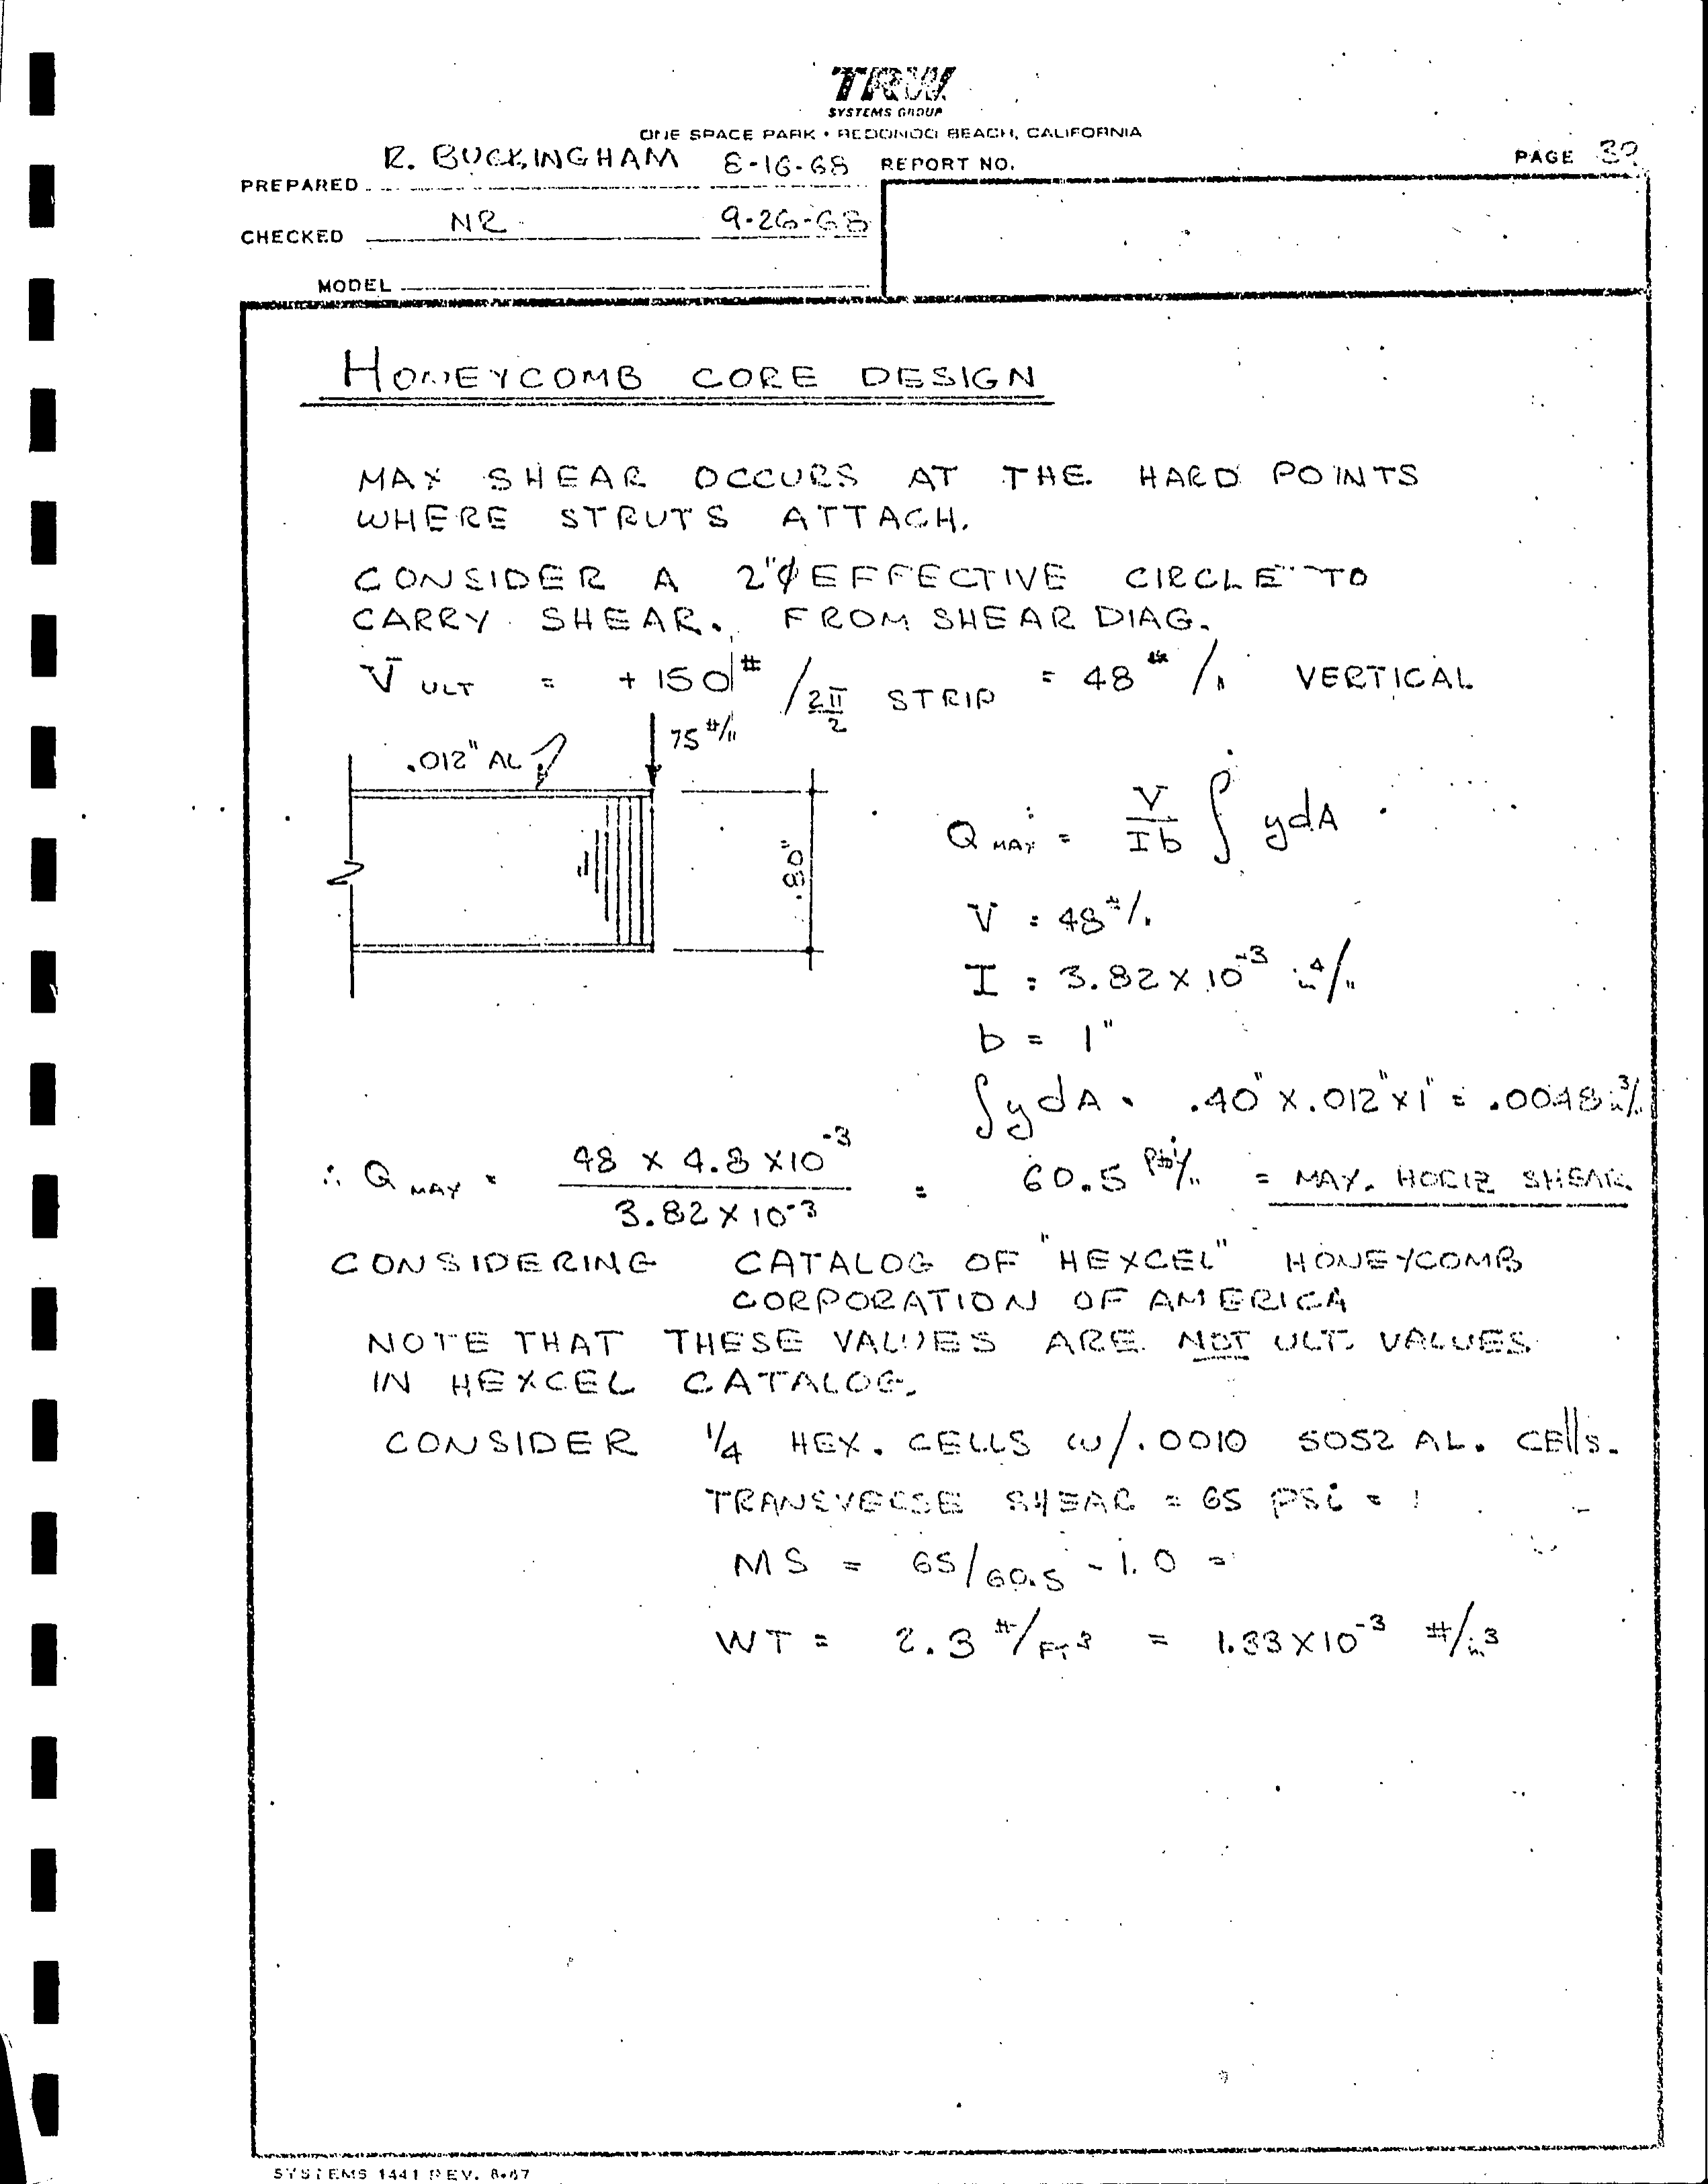 TRW
SYSTEMS GROUP
ONE SPACE PARK • REDONDO BEACH, CALIFORNIA
PREPARED R. BUCKINGHAM 8-16-68 REPORT NO. PAGE
CHECKED NR 9-26-68
MODEL
HONEYCOMB CORE DESIGN
MAX SHEAR OCCURS AT THE HARD POINTS
WHERE STRUTS ATTACH.
CONSIDER A 2"φ EFFECTIVE CIRCLE TO
CARRY SHEAR. FROM SHEAR DIAG.
V ULT = +150# / 2π/2 STRIP = 48 #/" VERTICAL
75 #/"
.012" AL
.80"
Q MAX = V/Ib ∫ ydA
V = 48 #/"
I = 3.82 × 10⁻³ in⁴/"
b = 1"
∫ydA = .40" × .012" × 1" = .0048 in³/"
∴ Q MAX = 48 × 4.8 × 10⁻³ / 3.82 × 10⁻³ = 60.5 = MAX. HORIZ SHEAR
CONSIDERING CATALOG OF "HEXCEL" HONEYCOMB
CORPORATION OF AMERICA
NOTE THAT THESE VALUES ARE NOT ULT. VALUES
IN HEXCEL CATALOG.
CONSIDER 1/4 HEX. CELLS W/.0010 5052 AL. CELLS.
TRANSVERSE SHEAR = 65 PSI =
MS = 65/60.5 - 1.0 =
WT = 2.3 #/FT³ = 1.33×10⁻³ #/in³
SYSTEMS 1441 REV. 8-67